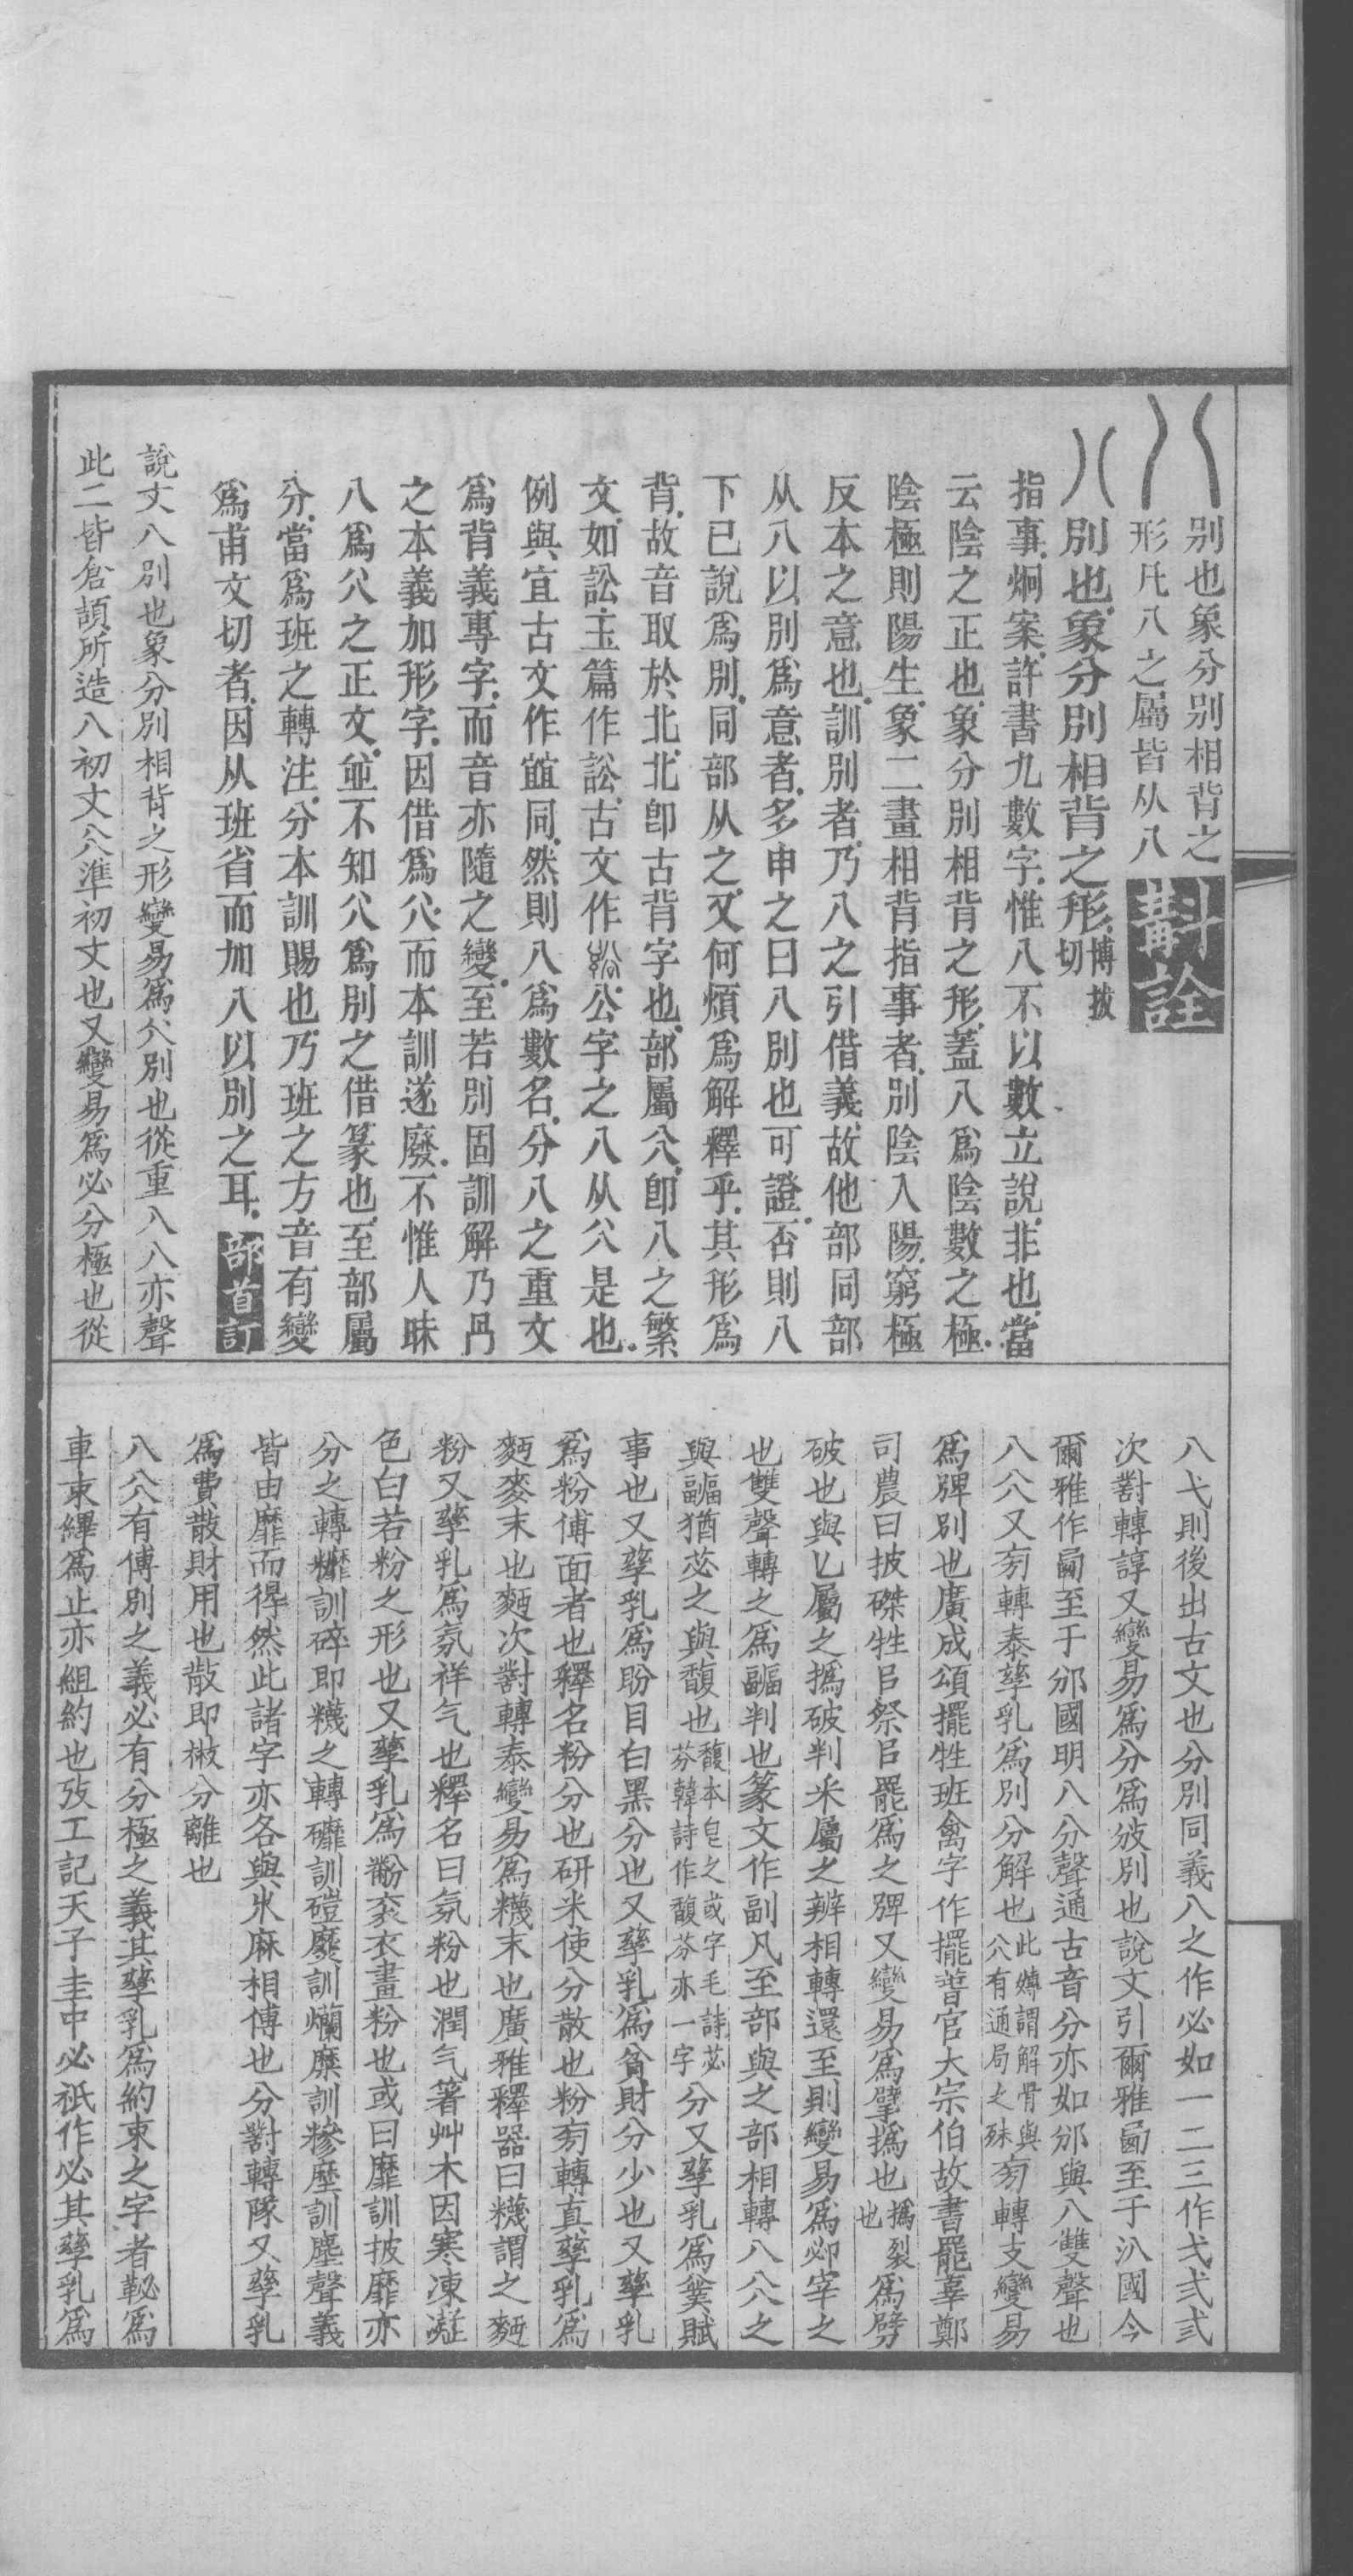 別也象分別相背之
形凡八之屬皆从八
斠詮
別也象分別相背之形博拔切
指事炯案許書九數字惟八不以數立說非也當
云陰之正也象分別相背之形蓋八爲陰數之極
陰極則陽生象二畫相背指事者別陰入陽窮極
反本之意也訓別者乃八之引借義故他部同部
从八以別爲意者多申之曰八別也可證否則八
下已說爲別同部从之又何煩爲解釋乎其形爲
背故音取於北北卽古背字也部屬㕣卽八之繁
文如訟玉篇作訟古文作公字之八从㕣是也
例與宜古文作㝖同然則八爲數名分八之重文
爲背義專字而音亦隨之變至若別固訓解乃冎
之本義加形字因借爲㕣而本訓遂廢不惟人昧
八爲㕣之正文並不知㕣爲別之借篆也至部屬
分當爲班之轉注分本訓賜也乃班之方音有變
爲甫文切者因从班省而加八以別之耳部首訂
說文八別也象分別相背之形變易爲㕣別也從重八八亦聲
此二皆倉頡所造八初文㕣準初文也又變易爲必分極也從
八弋則後出古文也分別同義八之作必如一二三作弌弍弎
次對轉諄又變易爲分爲攽別也說文引爾雅𠧟至于汃國今
爾雅作𠧟至于邠國明八分聲通古音分亦如邠與八雙聲也
八㕣又旁轉泰孳乳爲別分解也此專謂解骨與㕣有通局之殊旁轉支變易
爲㔗別也廣成頌擺牲班禽字作擺昔官大宗伯故書罷辜鄭
司農曰披磔牲㠯祭㠯罷爲之㔗又變易爲擘撝也撝裂也爲劈
破也與乚屬之撝破判釆屬之辨相轉還至則變易爲卯宰之
也雙聲轉之爲副判也篆文作副凡至部與之部相轉八㕣之
與副猶苾之與馥也馥本皀之或字毛詩苾芬韓詩作馥芬亦一字分又孳乳爲糞賦
事也又孳乳爲盼目白黑分也又孳乳爲貧財分少也又孳乳
爲粉傅面者也釋名粉分也研米使分散也粉旁轉真孳乳爲
麪麥末也麪次對轉泰變易爲糢末也廣雅釋器曰糢謂之麪
粉又孳乳爲氛祥气也釋名曰氛粉也潤气箸艸木因寒凍凝
色白若粉之形也又孳乳爲黺衮衣畫粉也或曰靡訓披靡亦
分之轉𪎭訓碎即糢之轉礳訓磑糜訓爛糜訓糝塺訓塵聲義
皆由靡而得然此諸字亦各與𣏟麻相傅也分對轉隊又孳乳
爲費散財用也散即㪔分離也
八㕣有傅別之義必有分極之義其孳乳爲約束之字者䩛爲
車束繹爲止亦組約也攷工記天子圭中必祇作必其孳乳爲